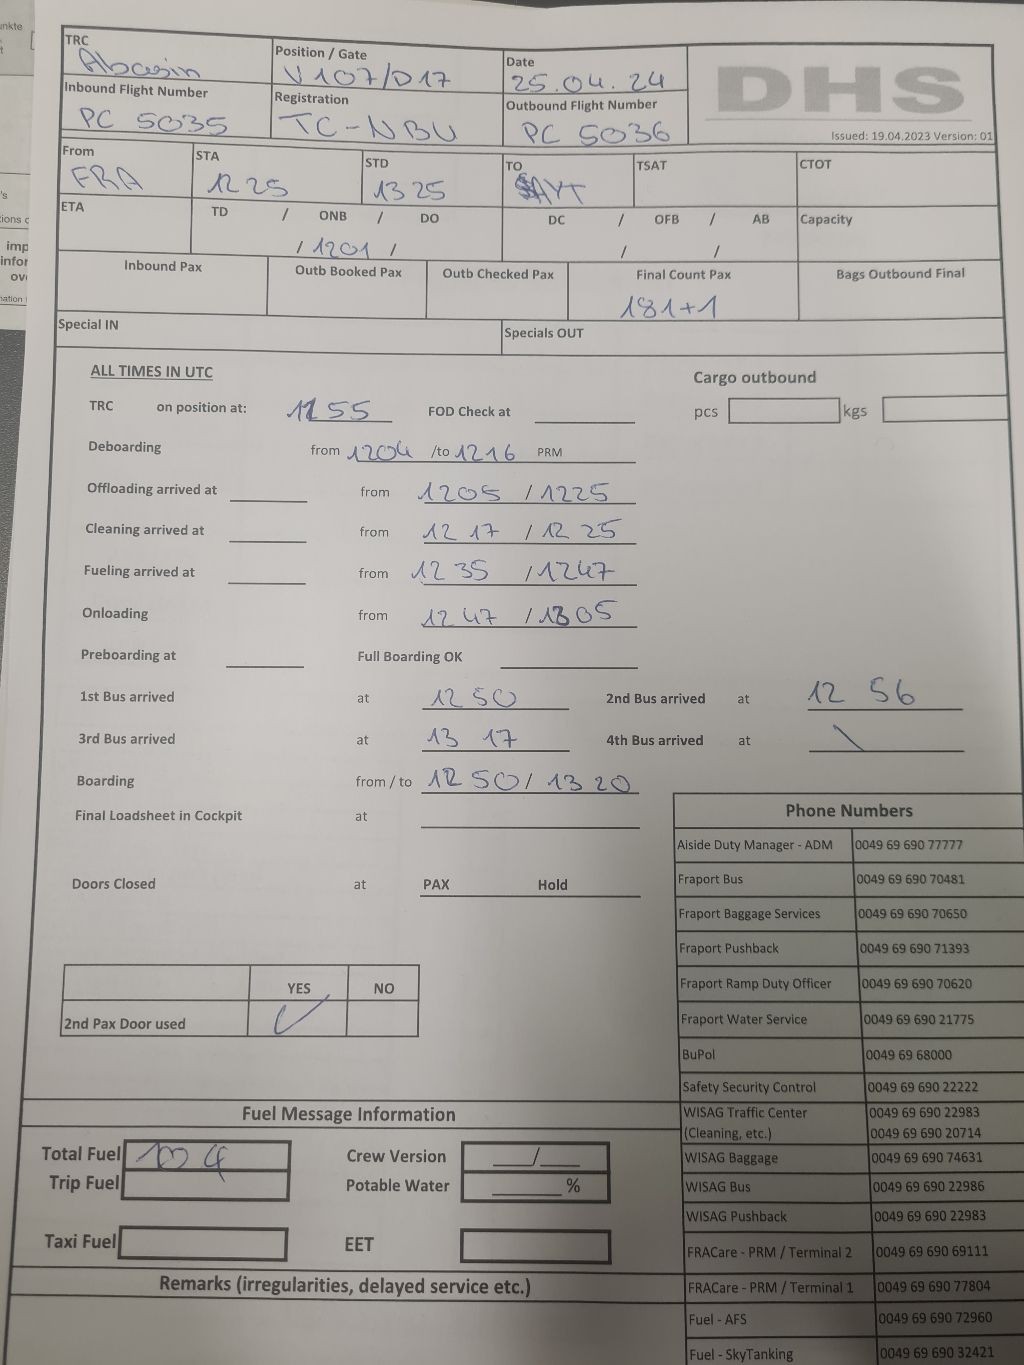 nkte
t
's
tions c
imp
infor
ov
nation
TRC Abasin Position / Gate V107/D17 Date 25.04.24 DHS
Inbound Flight Number PC 5035 Registration TC-NBU Outbound Flight Number PC 5036
Issued: 19.04.2023 Version: 01
From FRA STA 1225 STD 1325 TO AYT TSAT CTOT
ETA TD / ONB / DO DC / OFB / AB Capacity
/ 1201 / / /
Inbound Pax Outb Booked Pax Outb Checked Pax Final Count Pax Bags Outbound Final
181+1
Special IN Specials OUT
ALL TIMES IN UTC Cargo outbound
TRC on position at: 1155 FOD Check at pcs kgs
Deboarding from 1204 /to 1216 PRM
Offloading arrived at from 1205 / 1225
Cleaning arrived at from 12 17 / 12 25
Fueling arrived at from 12 35 / 1247
Onloading from 12 47 / 1305
Preboarding at Full Boarding OK
1st Bus arrived at 12 50 2nd Bus arrived at 12 56
3rd Bus arrived at 13 17 4th Bus arrived at \
Boarding from / to 12 50 / 13 20
Final Loadsheet in Cockpit at
Doors Closed at PAX Hold
YES NO
2nd Pax Door used ✓
Phone Numbers
Aiside Duty Manager - ADM 0049 69 690 77777
Fraport Bus 0049 69 690 70481
Fraport Baggage Services 0049 69 690 70650
Fraport Pushback 0049 69 690 71393
Fraport Ramp Duty Officer 0049 69 690 70620
Fraport Water Service 0049 69 690 21775
BuPol 0049 69 68000
Safety Security Control 0049 69 690 22222
WISAG Traffic Center 0049 69 690 22983
(Cleaning, etc.) 0049 69 690 20714
WISAG Baggage 0049 69 690 74631
WISAG Bus 0049 69 690 22986
WISAG Pushback 0049 69 690 22983
FRACare - PRM / Terminal 2 0049 69 690 69111
FRACare - PRM / Terminal 1 0049 69 690 77804
Fuel - AFS 0049 69 690 72960
Fuel - SkyTanking 0049 69 690 32421
Fuel Message Information
Total Fuel 10 4 Crew Version /
Trip Fuel Potable Water %
Taxi Fuel EET
Remarks (irregularities, delayed service etc.)